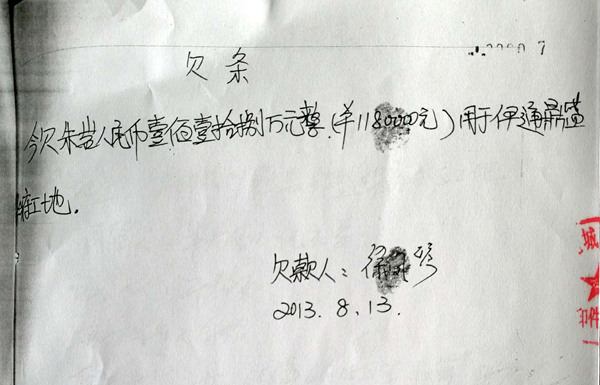 欠条
今欠朱岩人民币壹佰壹拾捌万元整(¥1180000元)用于伊通房盖
工地.
欠款人:徐
2013.8.13.
城